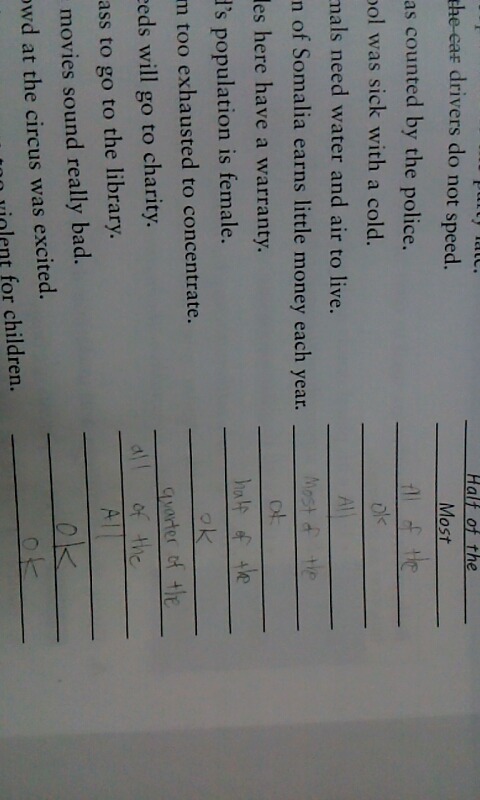 party late. Half of the
the car drivers do not speed. Most
as counted by the police. All of the
ool was sick with a cold. OK
mals need water and air to live. All
n of Somalia earns little money each year. Most of the
les here have a warranty. OK
d's population is female. half of the
m too exhausted to concentrate. OK
eeds will go to charity. quarter of the
ass to go to the library. all of the
movies sound really bad. All
owd at the circus was excited. OK
too violent for children. OK